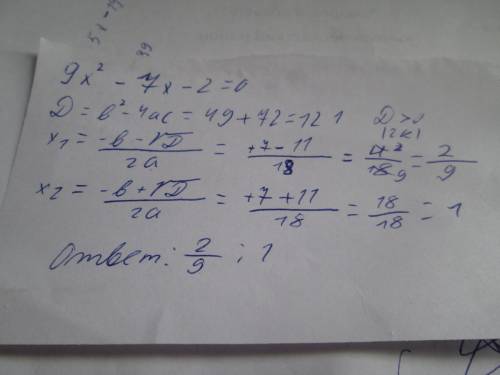 9x² - 7x - 2 = 0
D = b² - 4ac = 49 + 72 = 121 D > 0
x₁ = (-b - √D)/2a = (+7 - 11)/18 = 4 2/18 9 = 2/9
x₂ = (-b + √D)/2a = (+7 + 11)/18 = 18/18 = 1
Ответ: 2/9 ; 1